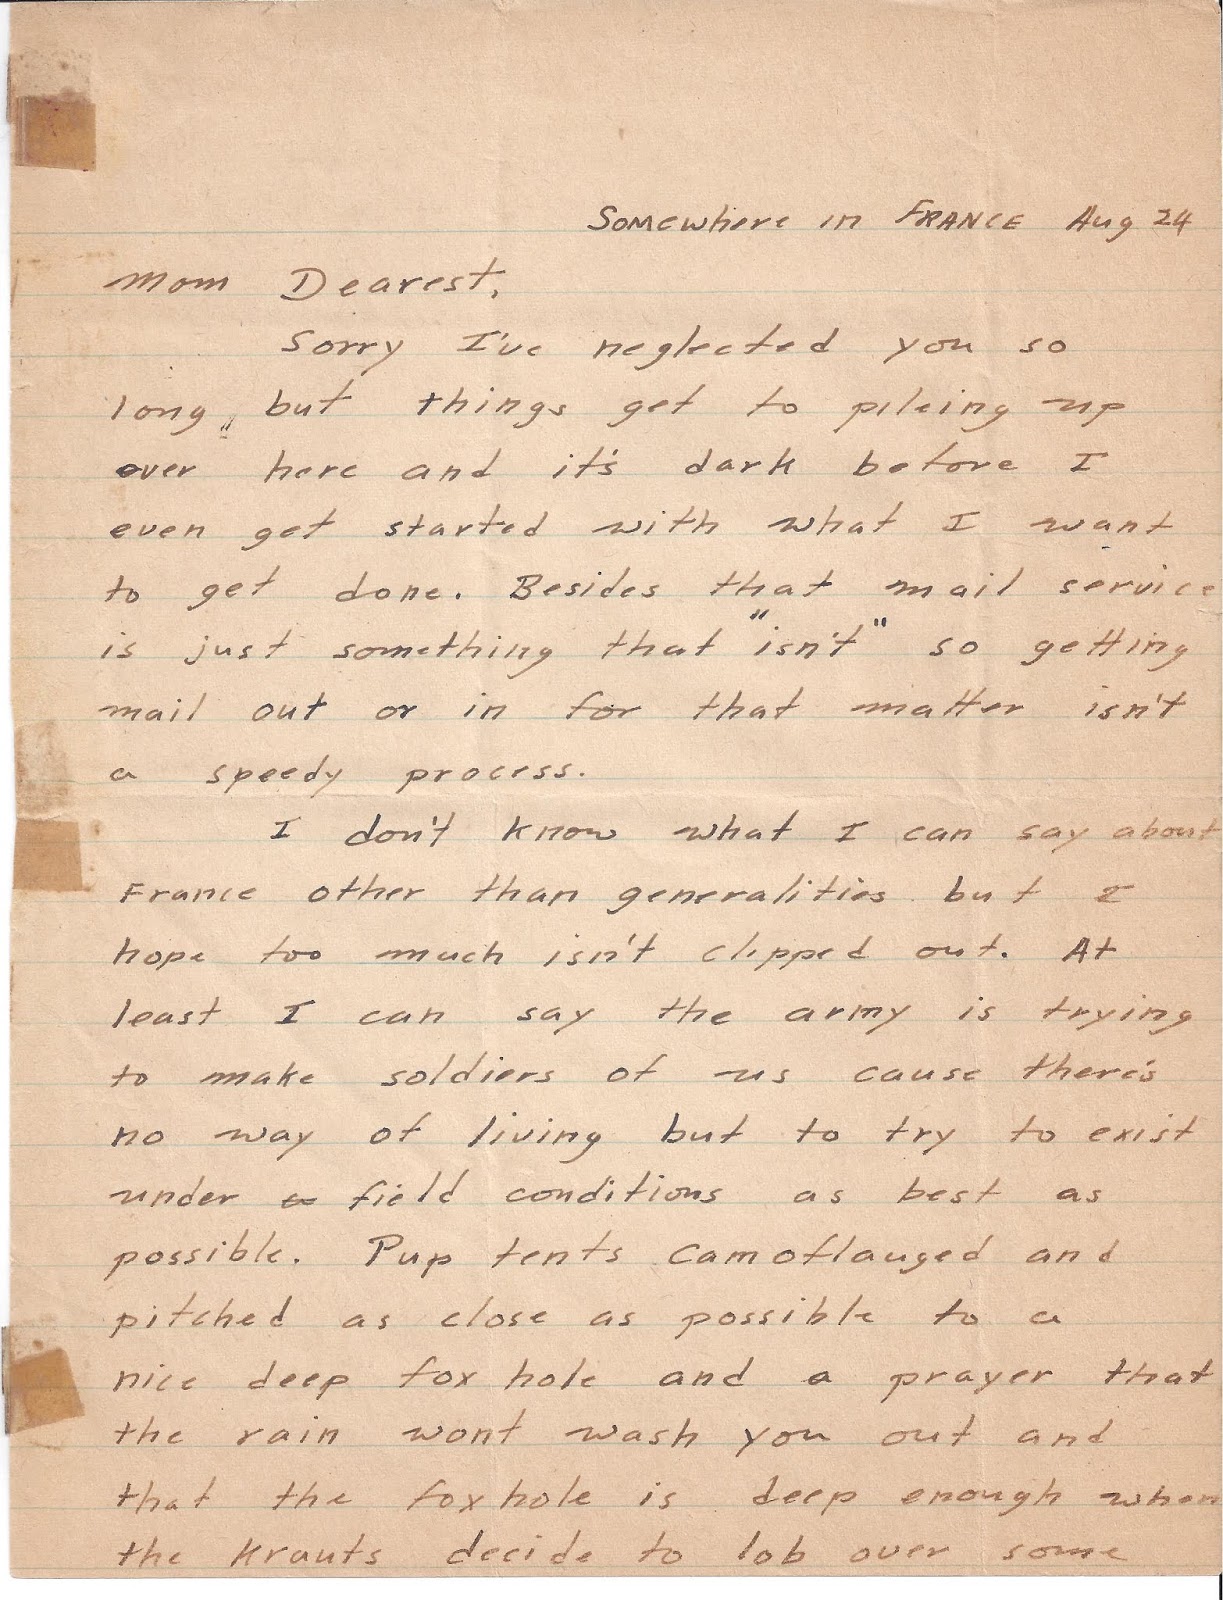 Somewhere in FRANCE Aug 24
Mom Dearest,
Sorry I've neglected you so
long, but things get to pileing up
over here and it's dark before I
even get started with what I want
to get done. Besides that mail service
is just something that "isn't" so getting
mail out or in for that matter isn't
a speedy process.
I don't know what I can say about
France other than generalities but I
hope too much isn't clipped out. At
least I can say the army is trying
to make soldiers of us cause there's
no way of living but to try to exist
under field conditions as best as
possible. Pup tents camoflauged and
pitched as close as possible to a
nice deep fox hole and a prayer that
the rain wont wash you out and
that the foxhole is deep enough when
the Krauts decide to lob over some